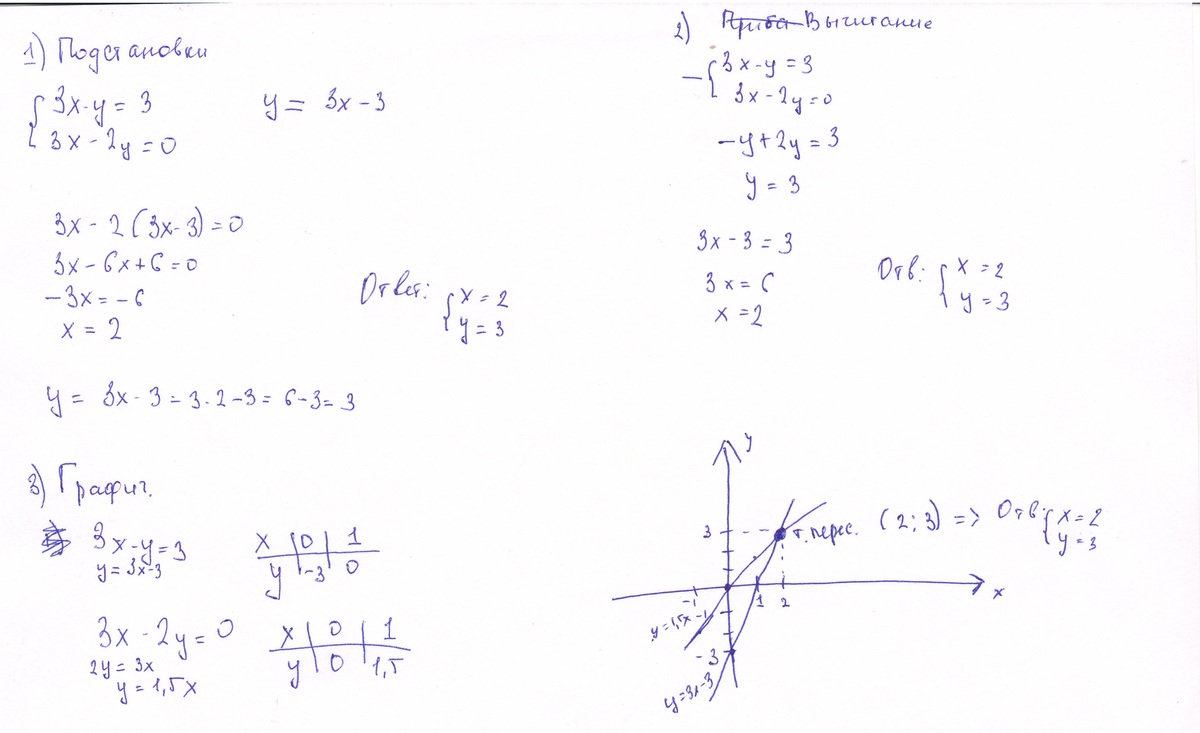 1) Подстановки
{ 3x-y = 3
3x - 2y = 0
y = 3x - 3
3x - 2(3x-3) = 0
3x - 6x + 6 = 0
-3x = -6
x = 2
Ответ: { x = 2
y = 3
y = 3x - 3 = 3·2-3 = 6-3 = 3
2) Вычитание
- { 3x-y = 3
3x-2y = 0
-y+2y = 3
y = 3
3x - 3 = 3
3x = 6
x = 2
Отв: { x = 2
y = 3
3) Графич.
3x-y = 3
y = 3x-3
x | 0 | 1
y | -3 | 0
3x - 2y = 0
2y = 3x
y = 1,5x
x | 0 | 1
y | 0 | 1,5
y
3
т. перес. (2; 3) => Отв: { x = 2
y = 3
-1
1 2
x
y=1,5x
-1
-3
y=3x-3